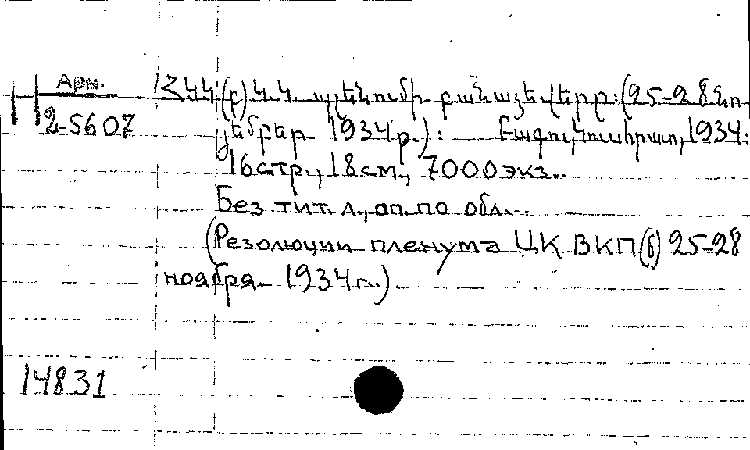 Арм.
2-5607
ՀԿԿ(բ)Կ.Կ. պլենումի բանաձեվերը:(25-28 նո
յեմբեր 1934թ.): Բագու, Կուսհրատ, 1934.
16стр., 18см., 7000экз..
Без тит. л., оп. по обл..
(Резолюции пленума ЦК ВКП(б) 25-28
ноября 1934г.)
14831